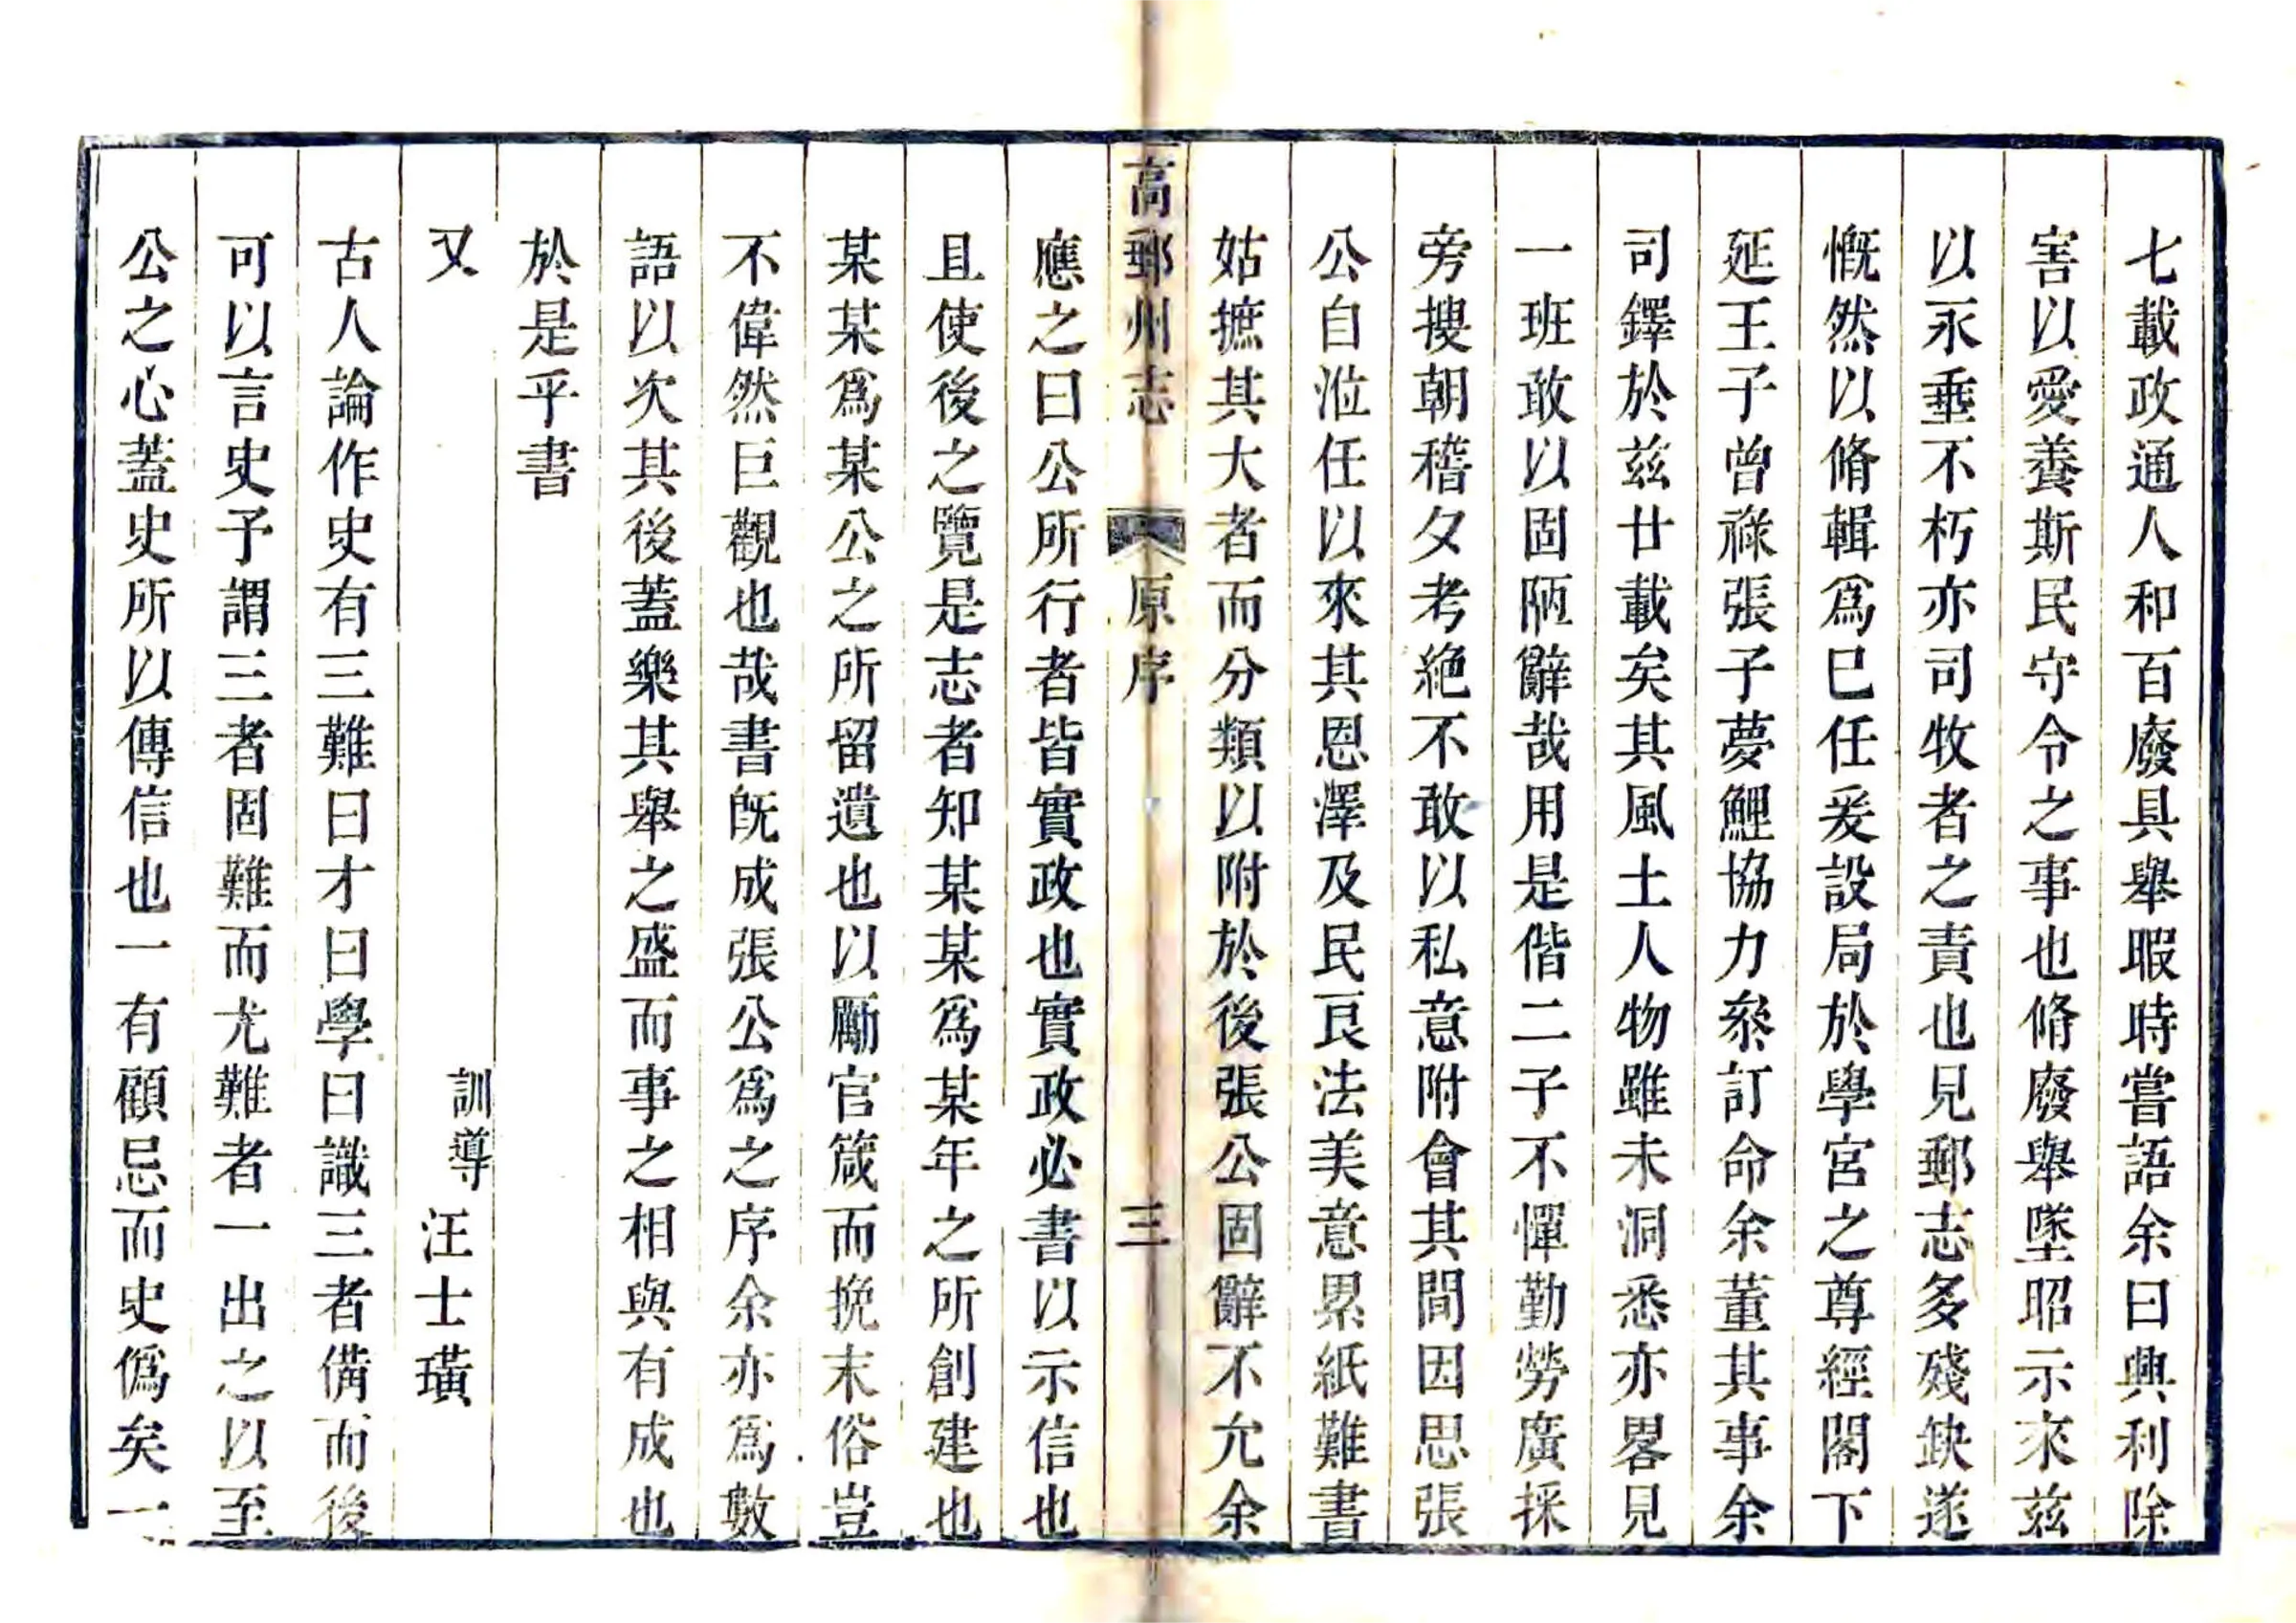 七載政通人和百廢具舉暇時嘗語余曰興利除
害以愛養斯民守令之事也脩廢舉墜昭示來茲
以永垂不朽亦司牧者之責也見郵志多殘缺遂
慨然以脩輯爲巳任爰設局於學宮之尊經閣下
延王子曾祿張子夢鯉協力叅訂命余董其事余
司鐸於茲廿載矣其風土人物雖未洞悉亦畧見
一班敢以固陋辭哉用是偕二子不憚勤勞廣採
旁搜朝稽夕考絶不敢以私意附會其間因思張
公自涖任以來其恩澤及民良法美意累紙難書
姑摭其大者而分類以附於後張公固辭不允余
高郵州志 原序 三
應之曰公所行者皆實政也實政必書以示信也
且使後之覽是志者知某某爲某年之所創建也
某某爲某公之所留遺也以勵官箴而挽末俗豈
不偉然巨觀也哉書旣成張公爲之序余亦爲數
語以次其後蓋樂其舉之盛而事之相與有成也
於是乎書
又 訓導汪士璜
古人論作史有三難曰才曰學曰識三者備而後
可以言史予謂三者固難而尤難者一出之以至
公之心蓋史所以傳信也一有顧忌而史僞矣一